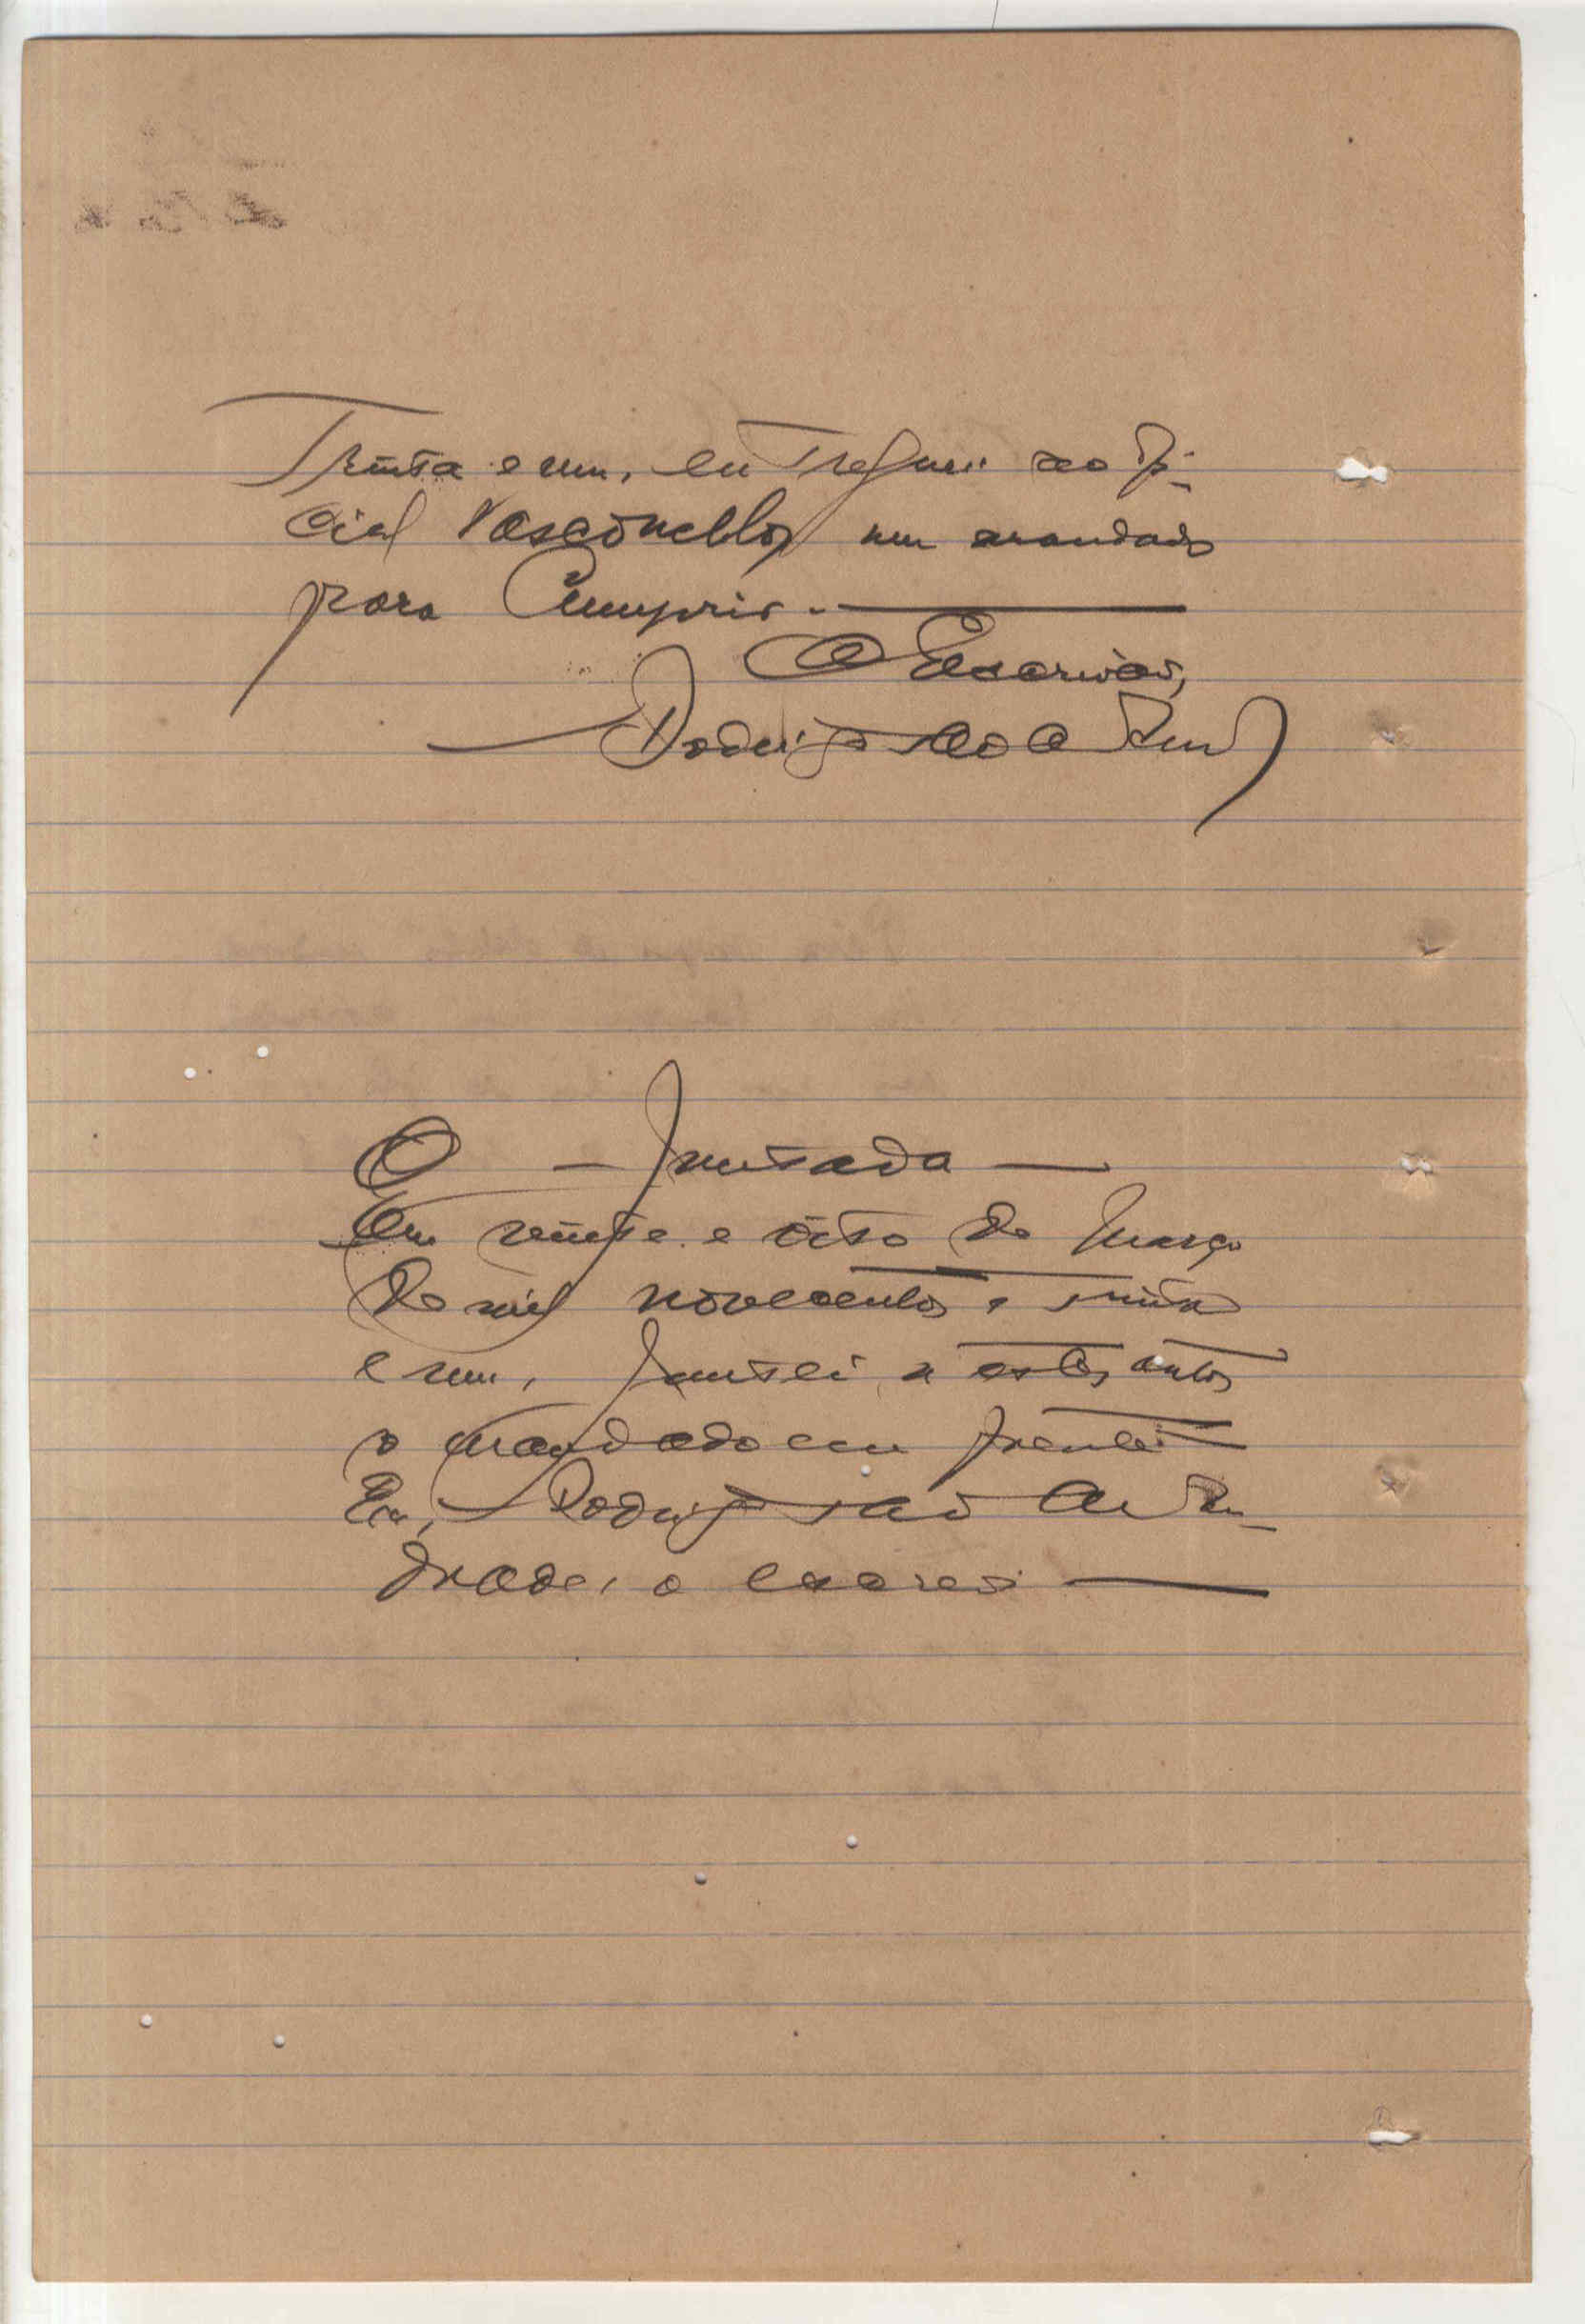 Trinta e um, entreguei ao offi-
cial Vasconcellos um mandado
para cumprir.
O Escrivão,
Rodrigo
Juntada
Em vinte e oito de Março
de mil novecentos e trinta
e um, juntei a estes autos
o mandado em frente
Eu, Rodrigo de An-
drade, o escrevi